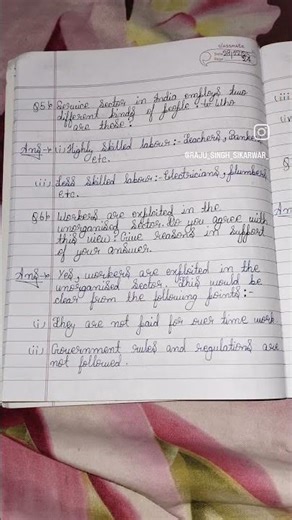 classmate
Date
Page 54
Q5:- Service Sector in India employs two
different kinds of people:- to Who
are these?
Ans:- (i) Highly skilled labour:- Teachers, Banker
etc.
@RAJU_SINGH_SIKARWAR_
(ii) Less skilled labour:- Electricians, Plumbers
etc.
Q6:- Workers are exploited in the
unorganised sector. Do you agree with
this view? Give reasons in support
of your answer.
Ans:- Yes, workers are exploited in the
unorganised sector. This would be
clear from the following points:-
(i) They are not paid for over time work
(ii) Government rules and regulations are
not followed.
(iii)
(ii)